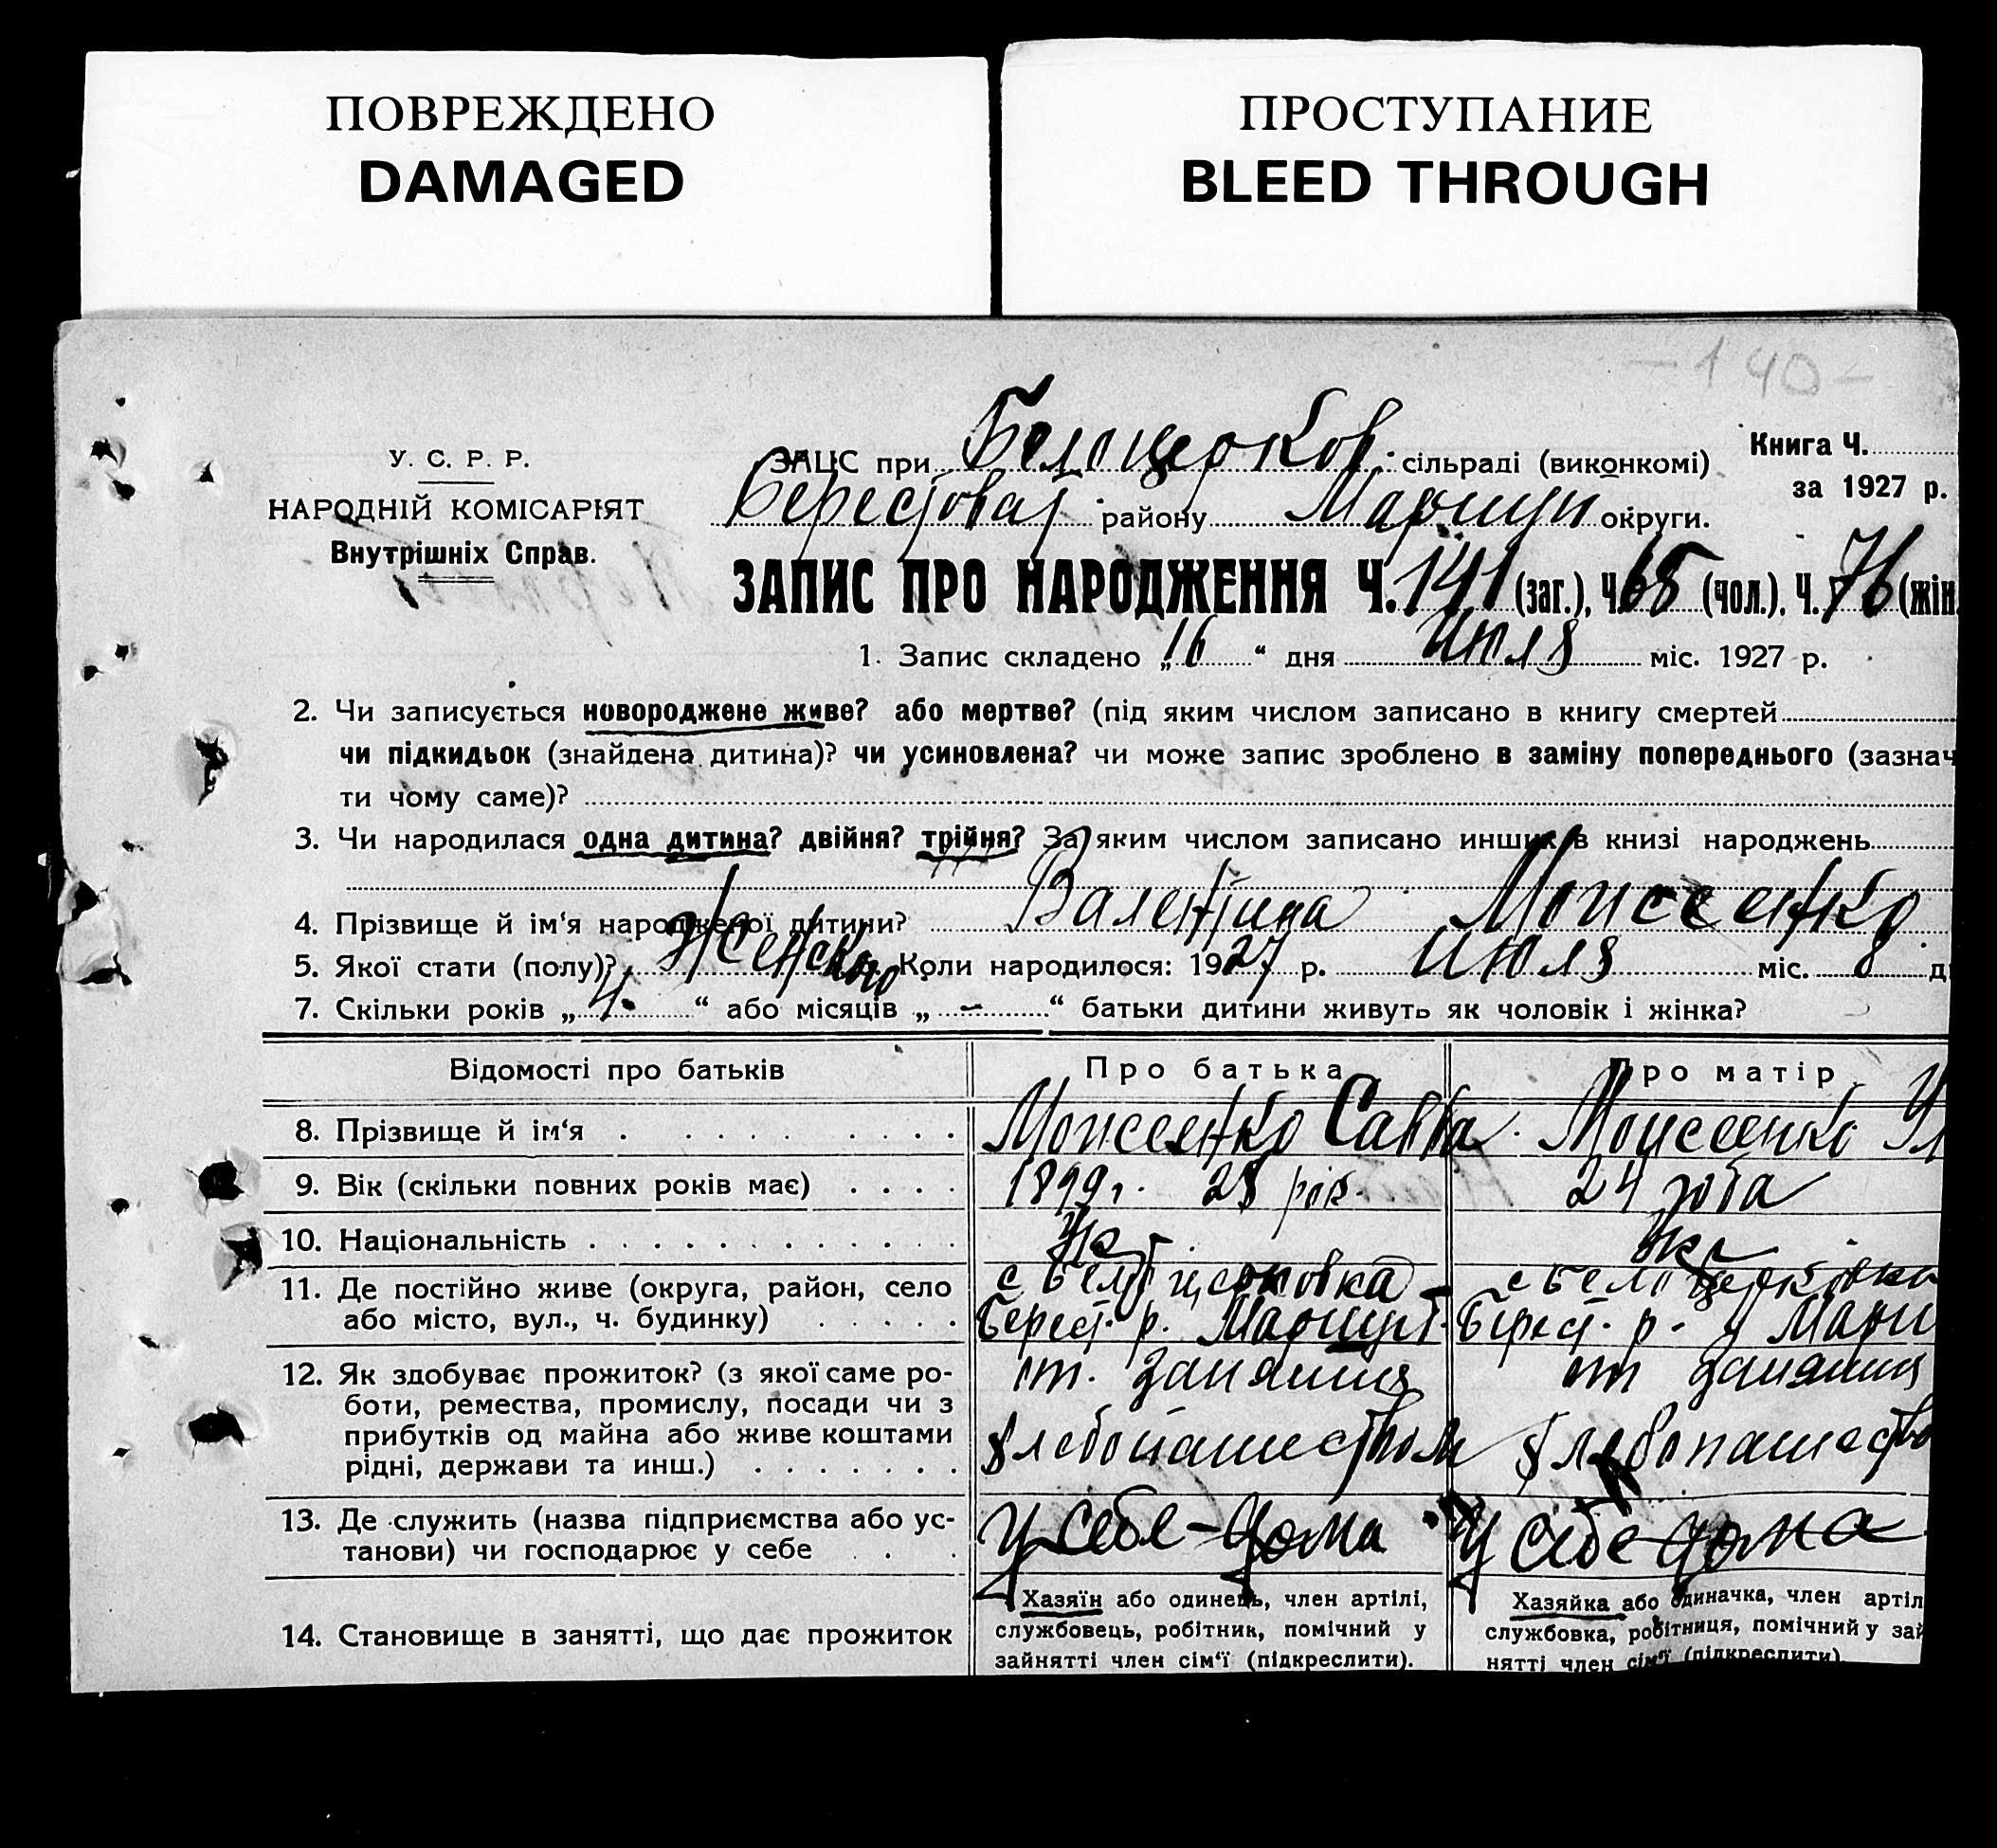 ПОВРЕЖДЕНО
DAMAGED
ПРОСТУПАНИЕ
BLEED THROUGH
-140-
У. С. Р. Р.
НАРОДНІЙ КОМІСАРІЯТ
Внутрішніх Справ.
ЗАЦС при Белоцерков. сільраді (виконкомі)
Книга Ч.
за 1927 р.
Берестоват. району Мариуп округи.
ЗАПИС ПРО НАРОДЖЕННЯ Ч. 141 (заг.), Ч. 65 (чол.), Ч. 76 (жін.
1. Запис складено „16“ дня Июля міс. 1927 р.
2. Чи записується новороджене живе? або мертве? (під яким числом записано в книгу смертей
чи підкидьок (знайдена дитина)? чи усиновлена? чи може запис зроблено в заміну попереднього (зазнач
ти чому саме)?
3. Чи народилася одна дитина? двійня? трійня? За яким числом записано инших в книзі народжень
4. Прізвище й ім‘я народженої дитини? Валентина Моисеенко
5. Якої стати (полу)? Женского Коли народилося: 1927 р. Июля міс. 8 д
7. Скільки років „4.“ або місяців „-“ батьки дитини живуть як чоловік і жінка?
Відомості про батьків Про батька Про матір
8. Прізвище й ім‘я Моисеенко Савва. Моисеенко Ул
9. Вік (скільки повних років має) 1899 г. 28 рок. 24 года
10. Національність Укр. Укр
11. Де постійно живе (округа, район, село с Белоцерковка с Белоцерковка
або місто, вул., ч. будинку) Берест. р. Мариуп. Берест. р. Мари
12. Як здобуває прожиток? (з якої саме ро- от. занятия от занятия
боти, ремества, промислу, посади чи з
прибутків од майна або живе коштами хлебопашеством хлебопашество
рідні, держави та инш.)
13. Де служить (назва підприємства або ус- у себе-дома у себе-дома
танови) чи господарює у себе
Хазяїн або одинець, член артілі, Хазяйка або одиначка, член артіл
14. Становище в занятті, що дає прожиток службовець, робітник, помічний у службовка, робітниця, помічний у зай
зайнятті член сім‘ї (підкреслити). нятті член сім‘ї (підкреслити)